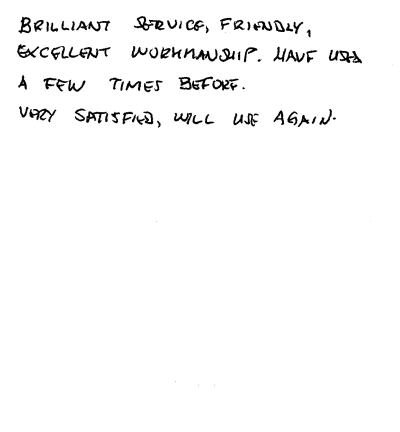 BRILLIANT SERVICE, FRIENDLY,
EXCELLENT WORKMANSHIP. HAVE USED
A FEW TIMES BEFORE.
VERY SATISFIED, WILL USE AGAIN.